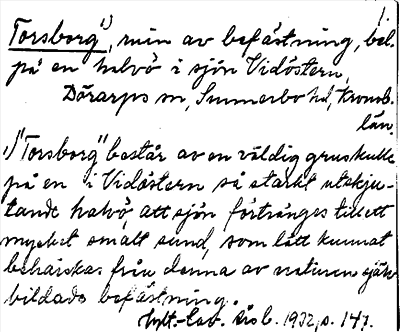 1.
Torsborg¹⁾, ruin av befästning, bel.
på en halvö i sjön Vidöstern,
Dörarps sn, Sunnerbo hd, Kronob.
län.
¹⁾"Torsborg" består av en väldig gruskulle
på en i Vidöstern så starkt utskju-
tande halvö, att sjön förtränges till ett
mycket smalt sund, som lätt kunnat
behärskas från denna av naturen själv
bildade befästning.
Hylt.-Cav. årsb. 1932, p. 147.